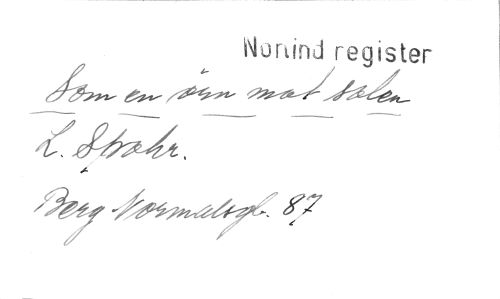 Norrind register
Som en örn mot solen
L. Spohr.
Berg Normalsgb. 87